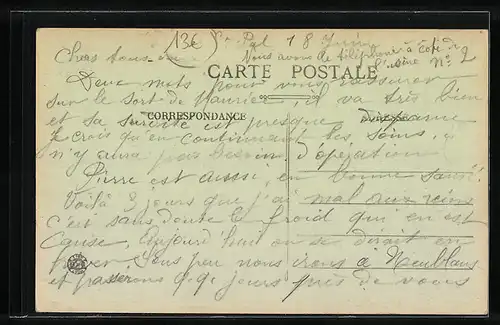 Chers tous
13€
St Pol 18 Juin
Nous avons le téléphone à côté de
l'usine N° 2
CARTE POSTALE
Deux mots pour vous rassurer
sur le sort de Maurice, il va très bien
et sa surdité est presque disparue
CORRESPONDANCE
Je crois qu'en continuant les soins, il
n'y aura pas besoin d'opération
Pierre est aussi en bonne santé.
Voilà 3 jours que j'ai mal aux reins
c'est sans doute le froid qui en est
cause. Aujourd'hui on se dirait en
hiver Sous peu nous irons à Neublans
et passerons q.q. jours près de vous